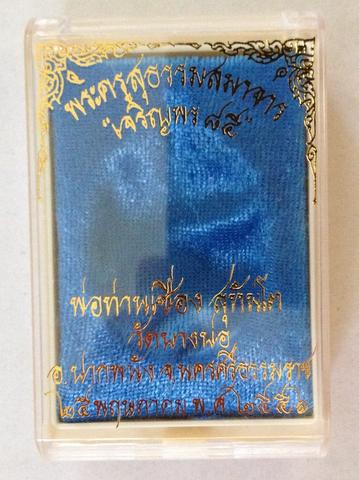 พระครูสุธรรมสมาจาร
"เจริญพร ๘๕"
พ่อท่านเชื่อง สุทันโต
วัดบางพ่อ
อ.ปากพนัง จ.นครศรีธรรมราช
๒๕ พฤษภาคม พ.ศ. ๒๕๕๑